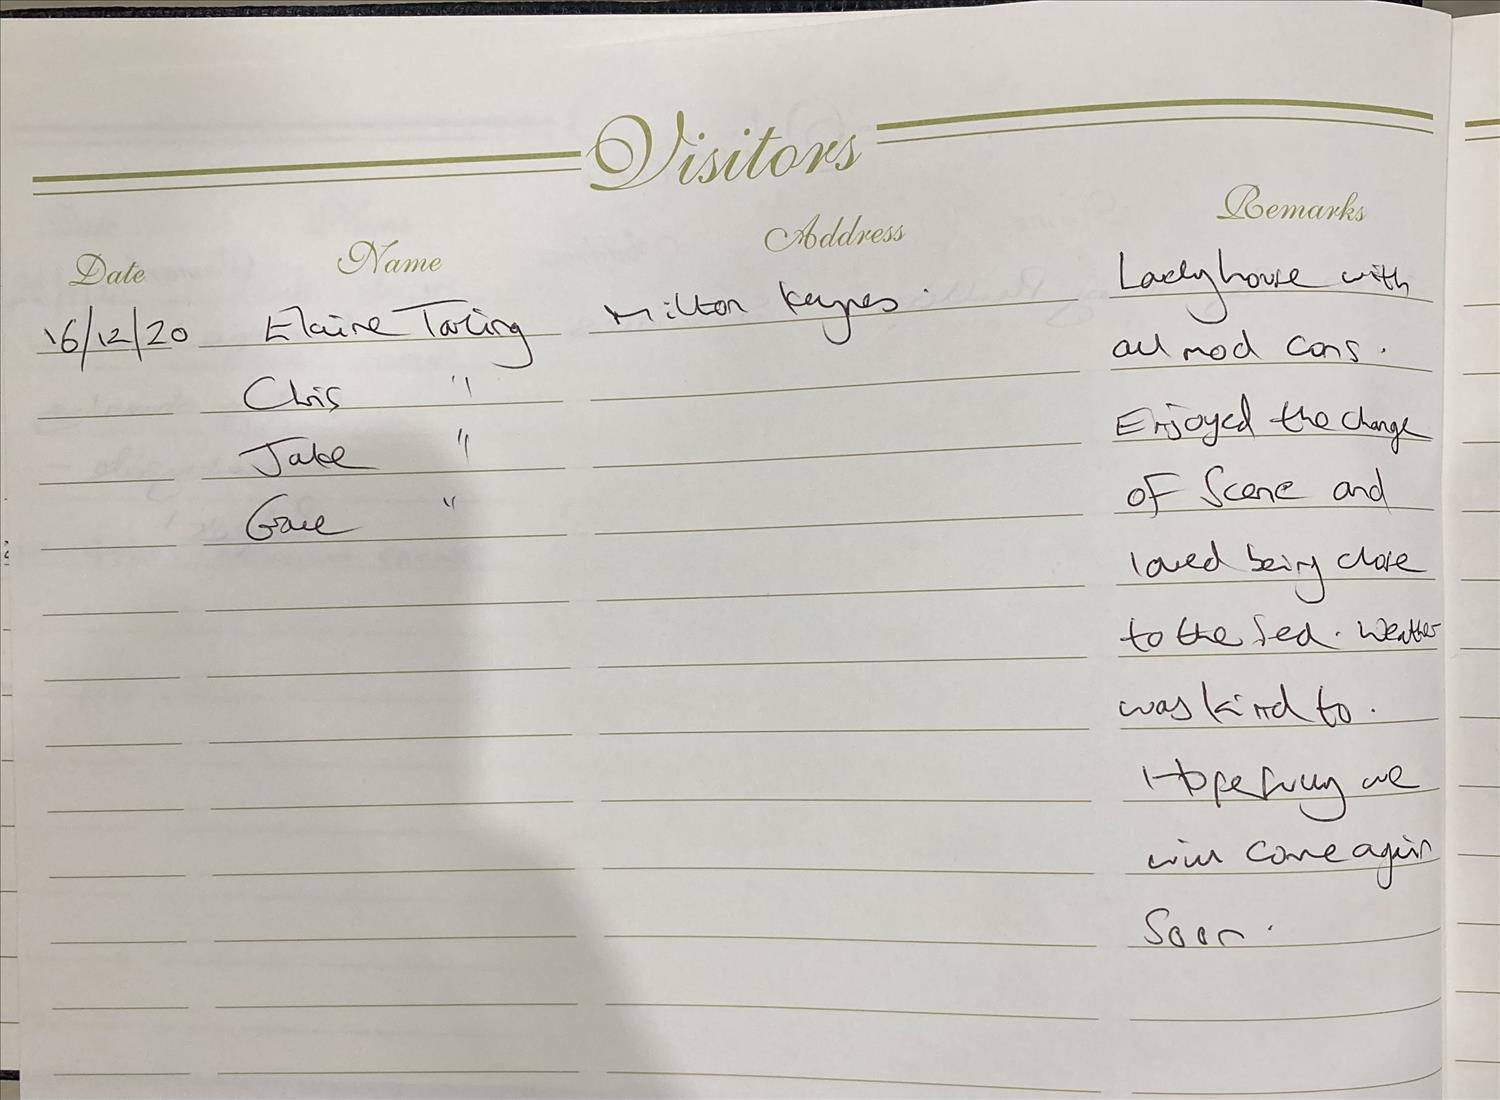 Visitors
Date Name Address Remarks
16/12/20 Elaine Milton Keynes. Lovely house with
Chris " all mod cons.
Jake " Enjoyed the change
Grace " of Scene and
loved being close
to the Sea. Weather
was kind to.
Hopefully we
will come again
Soon.